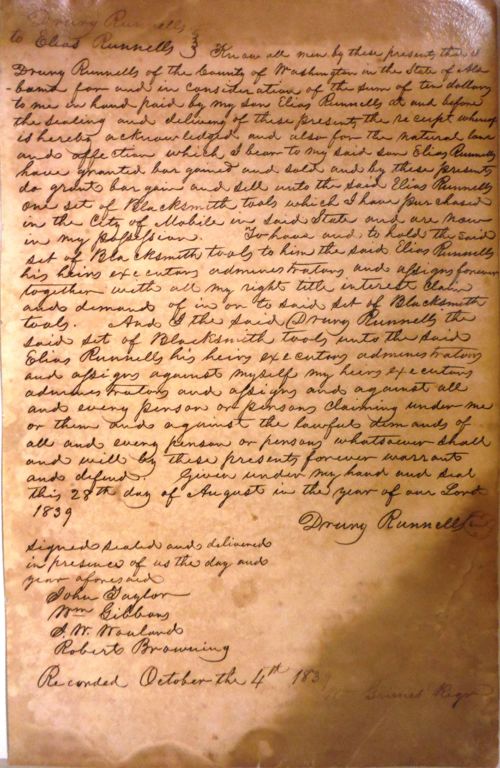 Drury Runnells
to Elias Runnells } Know all men by these presents that I
Drury Runnells of the County of Washington in the State of Ala
-bama for and in consideration of the sum of ten dollars
to me in hand paid by my son Elias Runnells at and before
the sealing and delivery of these presents the receipt whereof
is hereby acknowledged and also for the natural love
and affection which I bear to my said son Elias Runnells
have granted bargained and sold and by these presents
do grant bargain and sell unto the said Elias Runnells
one set of Blacksmith tools which I have purchased
in the City of Mobile in said State and are now
in my possession. To have and to hold the said
set of Blacksmith tools to him the said Elias Runnells
his heirs executors administrators and assigns forever
together with all my right title interest claim
and demand of in or to said set of Blacksmith
tools. And I the said Drury Runnells the
said set of Blacksmith tools unto the said
Elias Runnells his heirs executors administrators
and assigns against myself my heirs executors
administrators and assigns and against all
and every person or persons claiming under me
or them and against the lawful demands of
all and every person or persons whatsoever shall
and will by these presents forever warrant
and defend. Given under my hand and seal
this 28th day of August in the year of our Lord
1839
Drury Runnells
signed sealed and delivered
in presence of us the day and
year aforesaid
John Taylor
Wm Gibbons
Robert Browning
Recorded October the 4th 1839
Grimes Regr